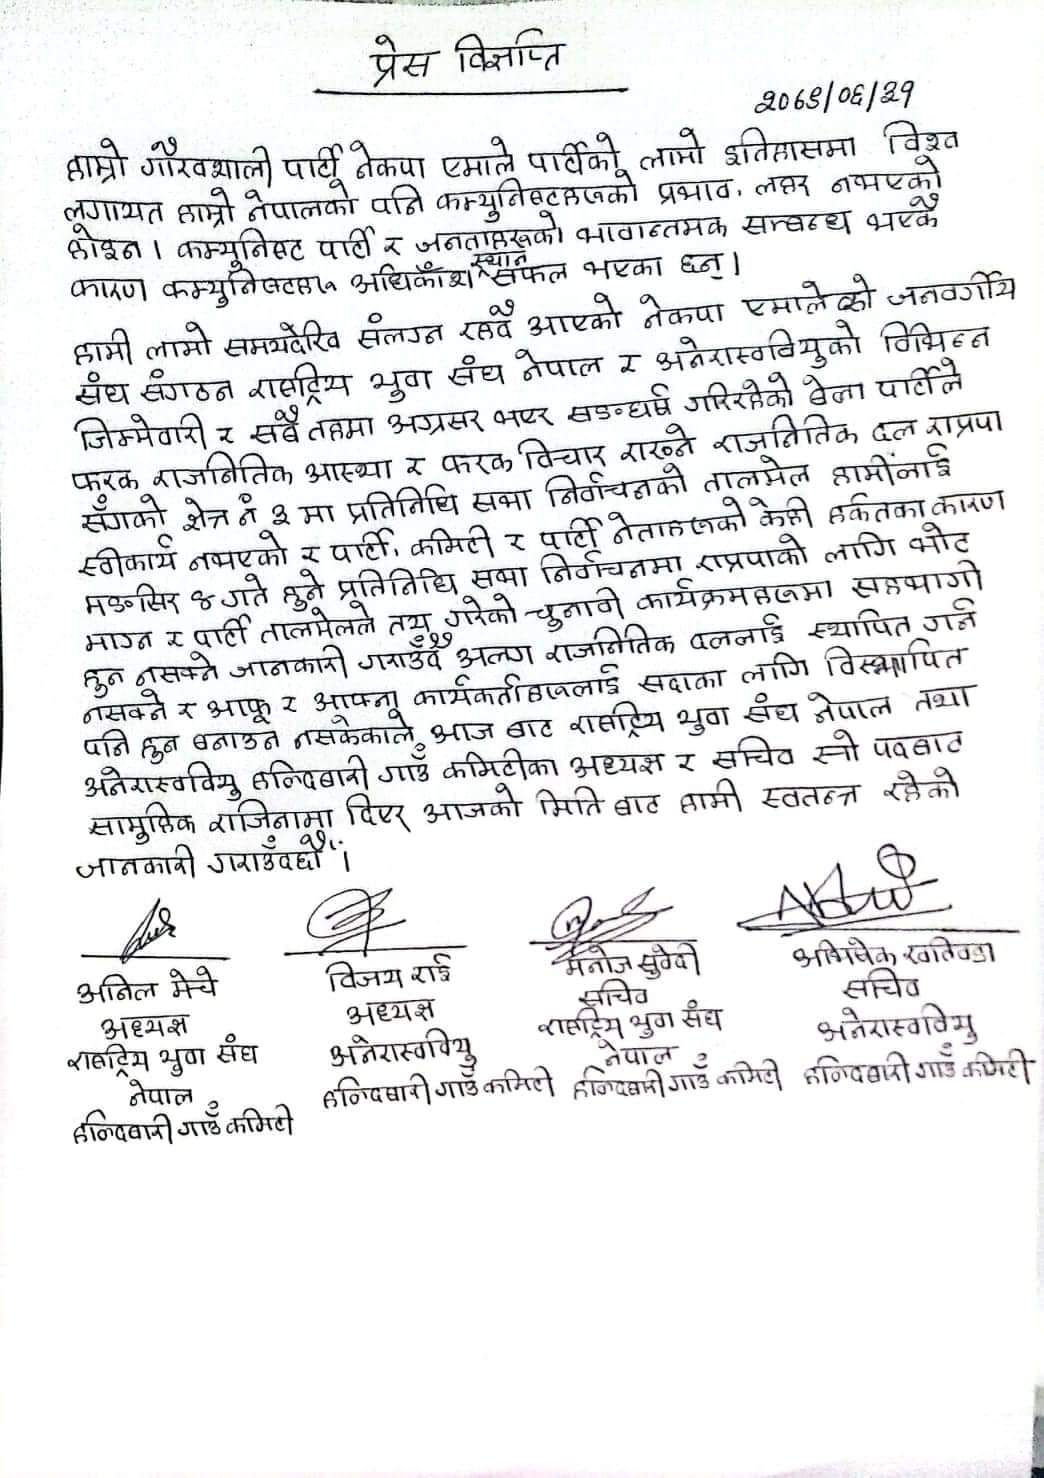 प्रेस विज्ञप्ति
२०७९/०६/२९
हाम्रो गौरवशाली पार्टी नेकपा एमाले पार्टीको लामो इतिहासमा विश्व
लगायत हाम्रो नेपालको पनि कम्युनिष्टहरूको प्रभाव, लहर नभएको
होइन। कम्युनिष्ट पार्टी र जनताहरूको भावनात्मक सम्बन्ध भएकै
कारण कम्युनिष्टहरू अधिकाँश स्थान सफल भएका छन्।
हामी लामो समयदेखि संलग्न रहदै आएको नेकपा एमालेको जनवर्गीय
संघ संगठन राष्ट्रिय युवा संघ नेपाल र अनेरास्ववियुको विभिन्न
जिम्मेवारी र सबै तहमा अग्रसर भएर सङघर्ष गरिरहेको बेला पार्टीले
फरक राजनितिक आस्था र फरक विचार राख्ने राजनितिक दल राप्रपा
सँगको क्षेत्र नं ३ मा प्रतिनिधि सभा निर्वाचनको तालमेल हामीलाई
स्वीकार्य नभएको र पार्टी, कमिटी र पार्टी नेताहरूको केही हर्कतका कारण
मङसिर ४ गते हुने प्रतिनिधि सभा निर्वाचनमा राप्रपाको लागि भोट
माग्न र पार्टी तालमेलले तय गरेको चुनावी कार्यक्रमहरूमा सहभागी
हुन नसक्ने जानकारी गराउँदै अलग राजनितिक दललाई स्थापित गर्न
नसक्ने र आफू र आफ्ना कार्यकर्ताहरूलाई सदाका लागि विस्थापित
पनि हुन बनाउन नसकेकाले आज बाट राष्ट्रिय युवा संघ नेपाल तथा
अनेरास्ववियु हल्दिबारी गाउँ कमिटीका अध्यक्ष र सचिव स्तो पदबाट
सामुहिक राजिनामा दिएर आजको मिति बाट हामी स्वतन्त्र रहेको
जानकारी गराउँदछौं।
अनिल मेचे विजय राई मनोज सुवेदी अभिषेक खतिवडा
अध्यक्ष अध्यक्ष सचिव सचिव
राष्ट्रिय युवा संघ अनेरास्ववियु राष्ट्रिय युवा संघ अनेरास्ववियु
नेपाल हल्दिबारी गाउँ कमिटी नेपाल हल्दिबारी गाउँ कमिटी
हल्दिबारी गाउँ कमिटी हल्दिबारी गाउँ कमिटी